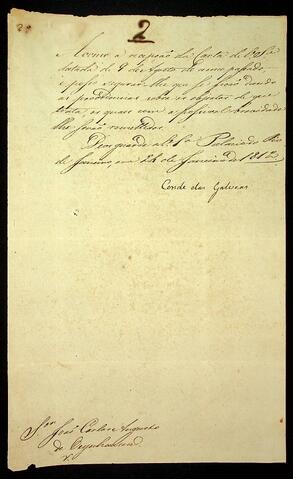 2
2
Acuso a recepção da Carta de V. Sª
datada de 9 de Agosto do anno passado,
e posso segurar-lhe que se ficão dando
as providencias sobre os objectos de que
trata, os quaes com a possivel brevidade
lhe serão remettidos.
Deos guarde a V. Sª Palacio do Rio
de Janeiro, em 28 de Janeiro de 1812
Conde das Galveas
Snr. João Carlos Augusto
de Oeynhausen